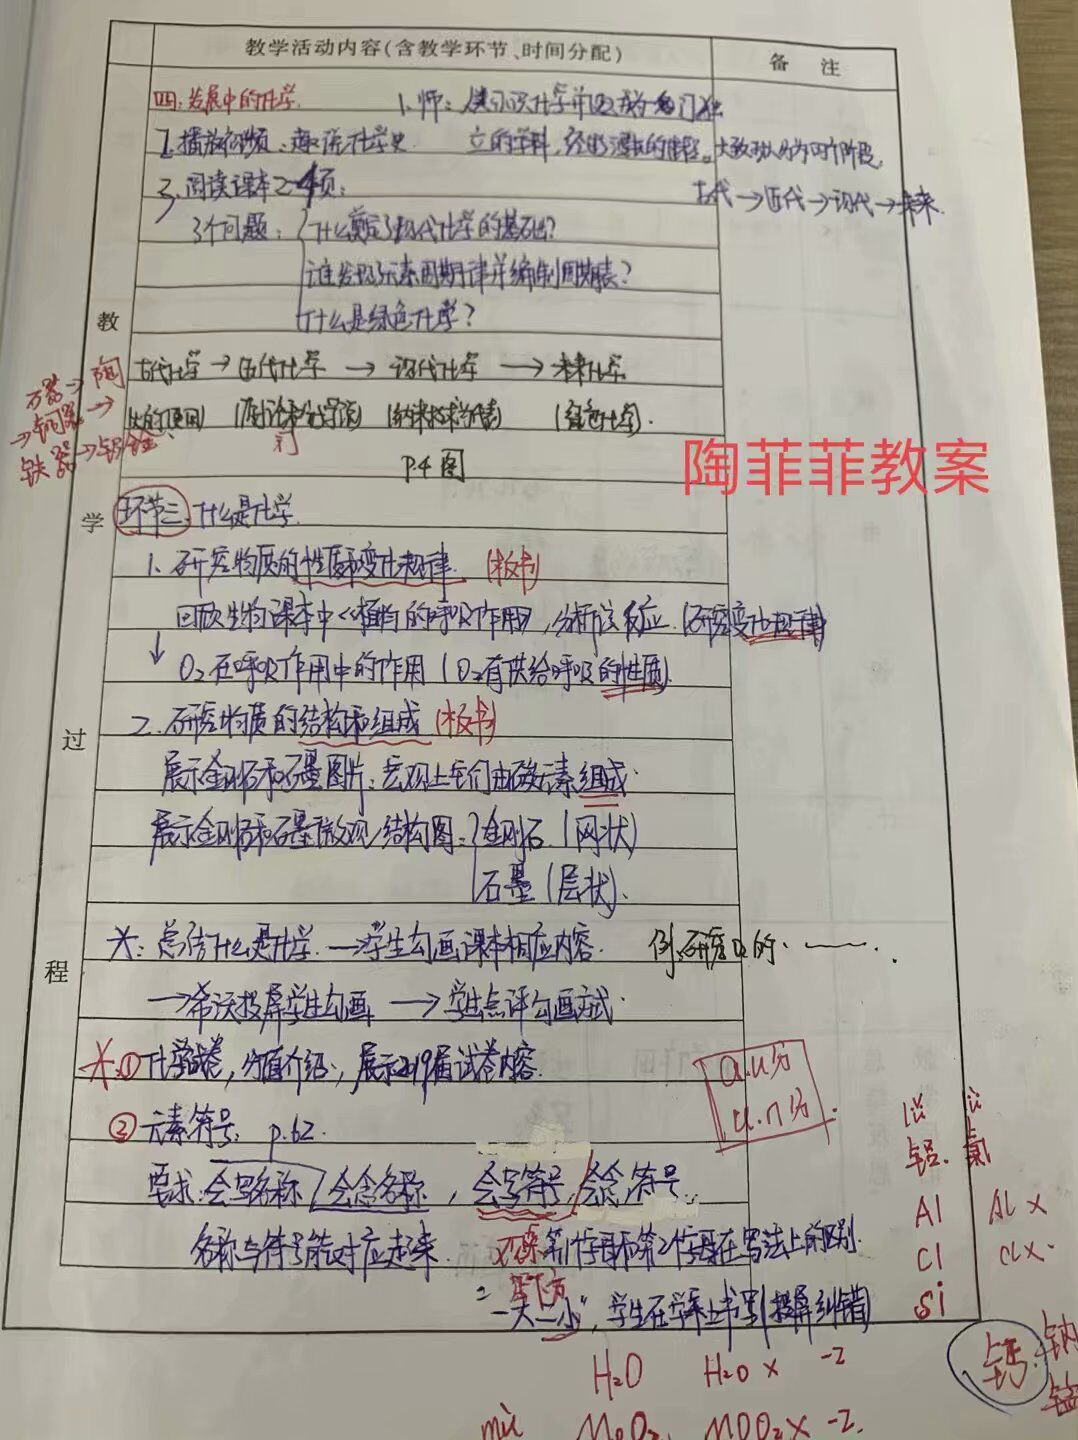 教学活动内容(含教学环节、时间分配)
备 注
四:发展中的化学
1.师:
立的学科,经
大致可以分为四个阶段。
古代→近代→现代→未来.
2.播放视频:趣说化学史
3.阅读课本2-4页:
3个问题:
什么奠定了近代化学的基础?
谁发现元素周期律并编制周期表?
什么是绿色化学?
教
学
过
程
石器→陶
→铜器→
铁器→铝合金
古代化学→近代化学→现代化学→未来化学
火的使用
(绿色化学).
P.4图
陶菲菲教案
环节三.什么是化学.
1.研究物质的性质和变化规律.(板书)
回顾生物课本中《植物的呼吸作用》,分析该反应.(研究变化规律)
↓ O₂在呼吸作用中的作用(O₂有供给呼吸的性质)
2.研究物质的结构和组成(板书)
展示金刚石和石墨图片:宏观上它们由碳元素组成.
展示金刚石和石墨微观结构图:
金刚石(网状)
石墨(层状).
总结什么是化学.→学生勾画课本相应内容.
例:研究
→希沃投屏学生勾画,→学生点评勾画方式.
①化学试卷,分值介绍,展示2019届试卷内容.
②元素符号:P.62.
要求:会写名称/会念名称,会写符号,会念符号.
名称与符号能对应起来.
第1字母和第2字母在写法上的区别.
"一大二小",学生在学案上书写(投屏纠错)
铝 氯
Al Al ×
Cl Cl ×
Si
钙 钠
H₂O H₂O × -2
MnO₂ MOO₂ × -2.